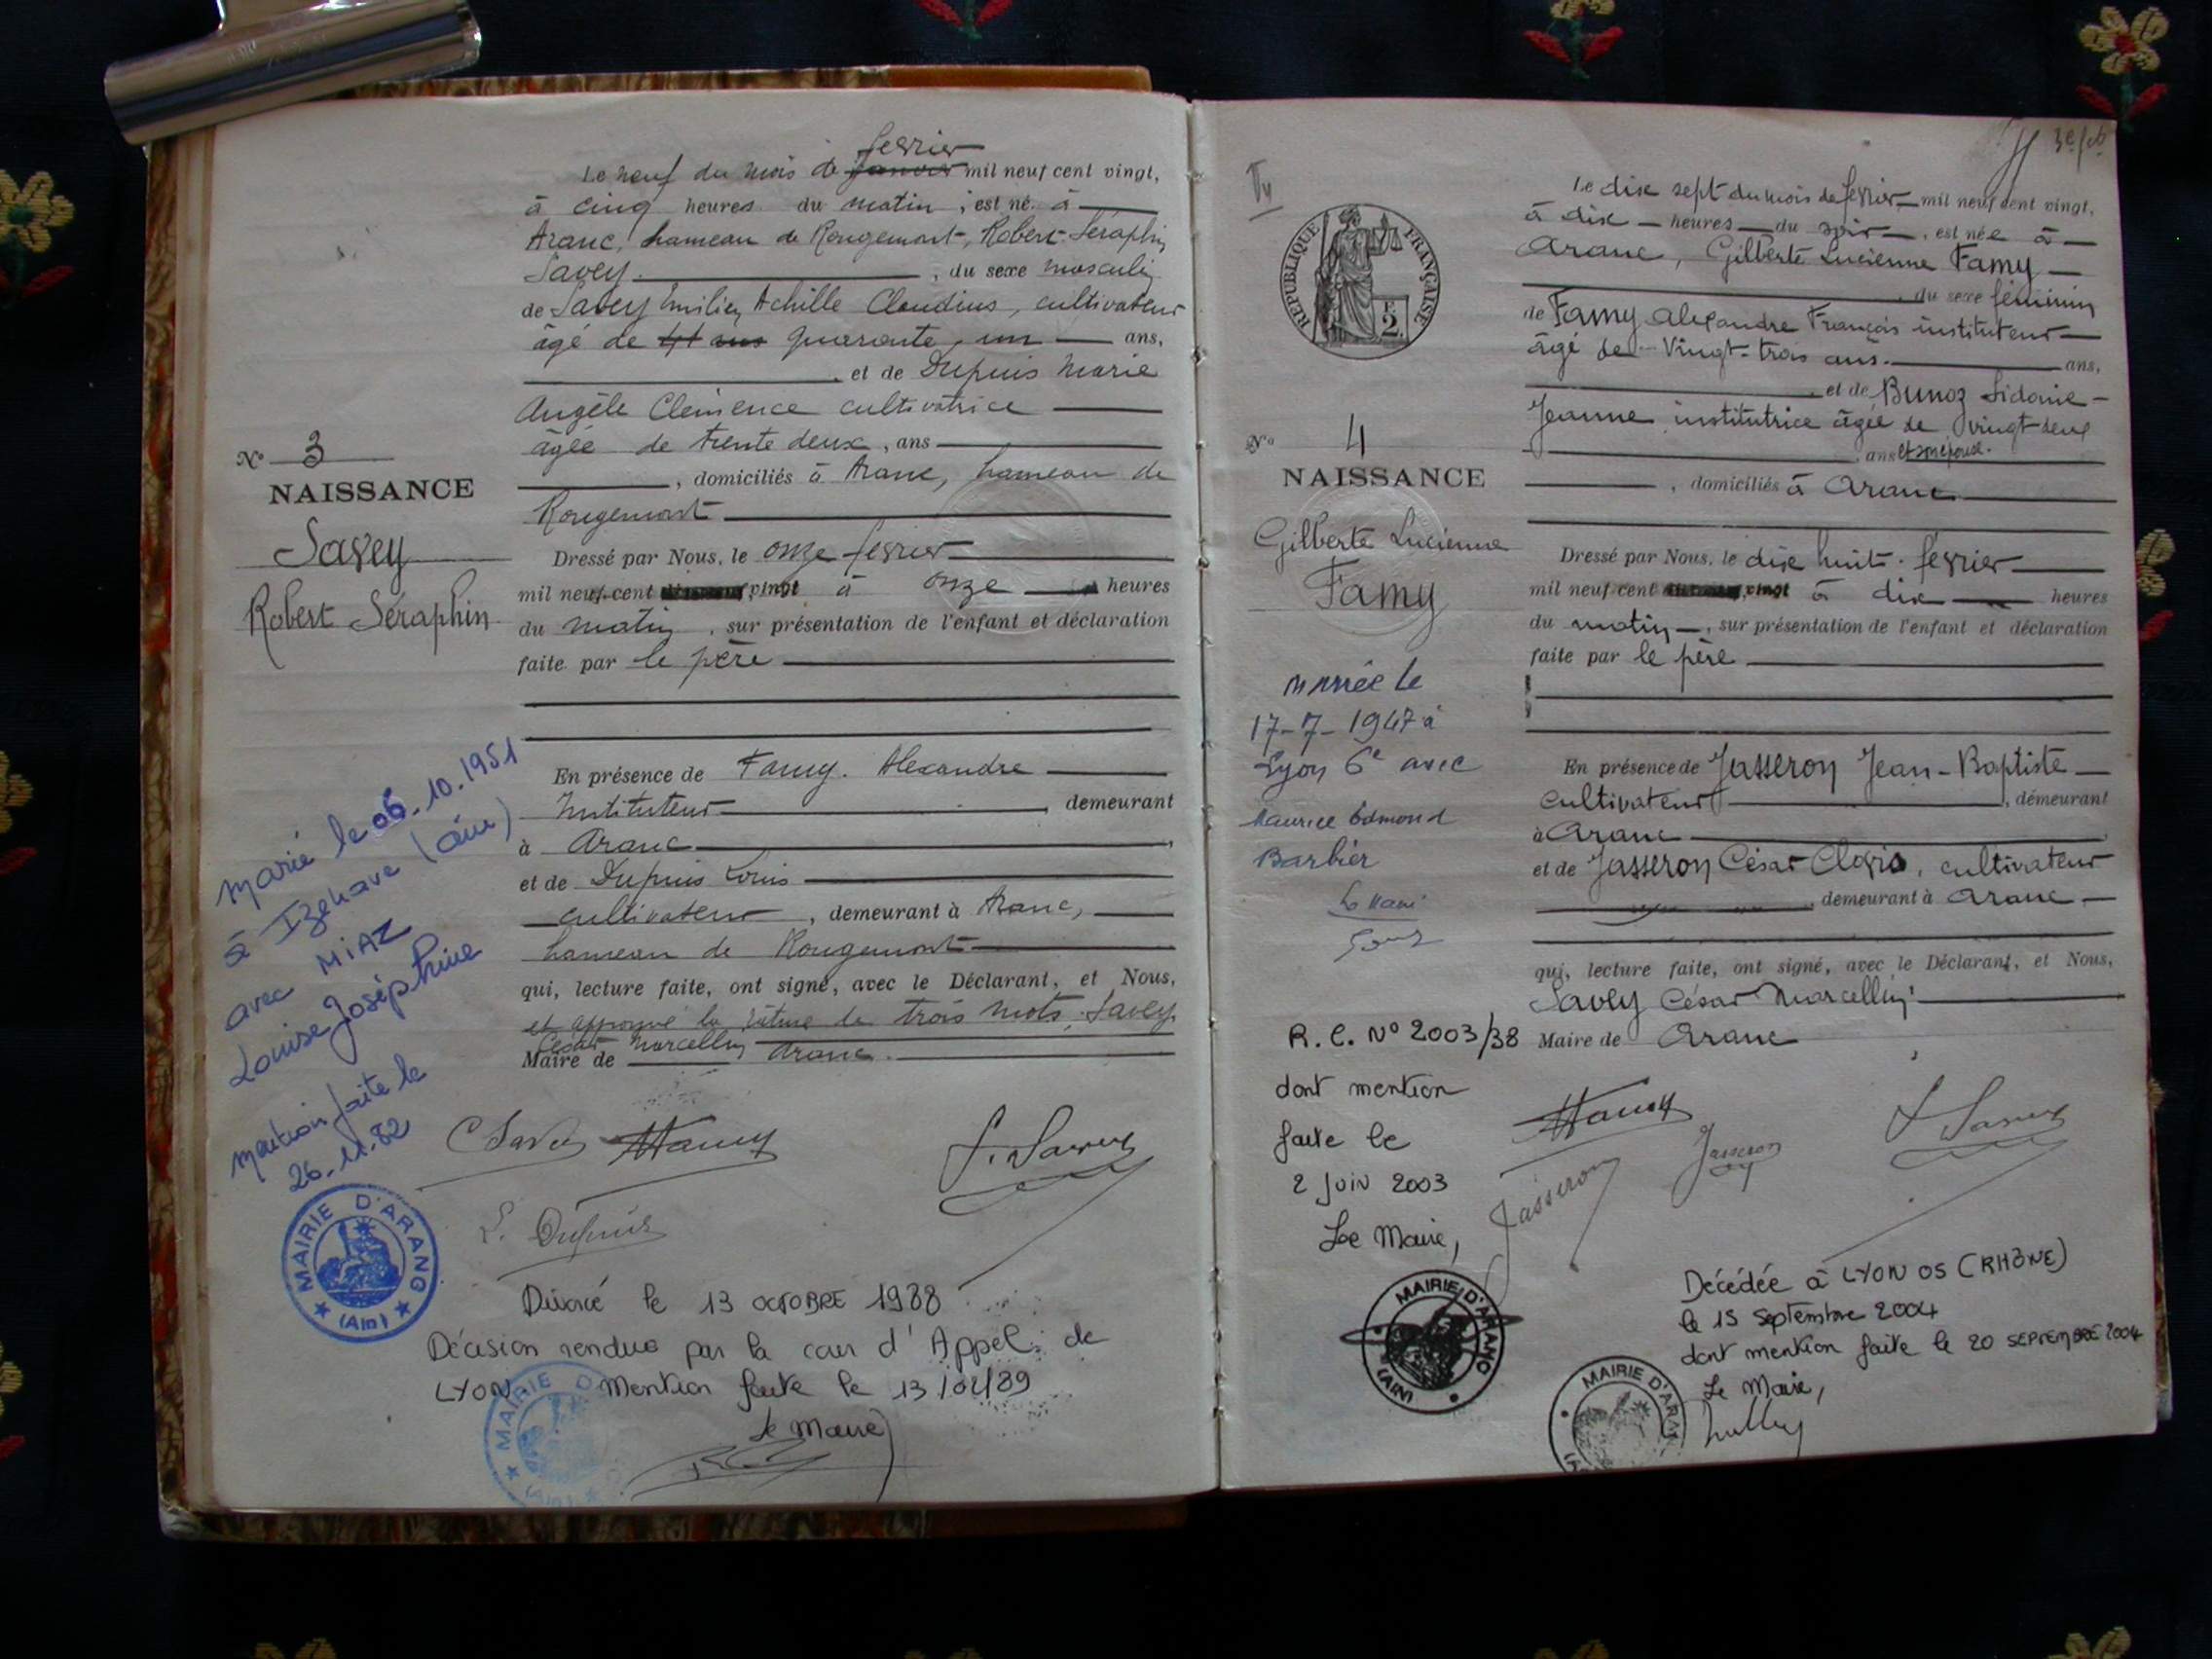 fevrier
Le neuf du mois de janvier mil neuf cent vingt,
à cinq heures du matin, est né à
Aranc, hameau de Rougemont, Robert Séraphin
Savey, du sexe masculin
de Savey Emilien Achille Claudius, cultivateur
âgé de 41 ans quarante un ans,
et de Dupuis Marie
Angèle Clémence cultivatrice
âgée de trente deux, ans
, domiciliés à Aranc, hameau de
Rougemont
Dressé par Nous, le onze fevrier
mil neuf cent vingt à onze heures
du matin, sur présentation de l'enfant et déclaration
faite par le père
En présence de Famy. Alexandre
Instituteur, demeurant
à Aranc,
et de Dupuis Louis
cultivateur, demeurant à Aranc,
hameau de Rougemont
qui, lecture faite, ont signé, avec le Déclarant, et Nous,
et approuvé la rature de trois mots, Savey
César Marcellin
Maire de Aranc.
N° 3
NAISSANCE
Savey
Robert Séraphin
Marié le 06.10.1951
à Izenave (Ain)
avec MIAZ
Louise Joséphine
mention faite le
26.11.82
MAIRIE D'ARANC
(Ain)
C Savey Famy
L. Dupuis
Divorcé le 13 OCTOBRE 1988
Décision rendue par la cour d'Appel de
LYON Mention faite le 13/02/89
Le Maire
MAIRIE D'
(Ain)
3e feb
Le dix sept du mois de fevrier mil neuf cent vingt,
à dix heures du soir, est née à
Aranc, Gilberte Lucienne Famy
, du sexe féminin
de Famy Alexandre François instituteur
âgé de Vingt-trois ans. ans,
et de Bunoz Sidonie
Jeanne institutrice âgée de vingt-deux
ans et son épouse.
, domiciliés à Aranc
Dressé par Nous, le dix huit fevrier
mil neuf cent vingt à dix heures
du matin, sur présentation de l'enfant et déclaration
faite par le père
En présence de Jasseron Jean-Baptiste
cultivateur, demeurant
à Aranc
et de Jasseron César Clovis, cultivateur
, demeurant à Aranc
qui, lecture faite, ont signé, avec le Déclarant, et Nous,
Savey César Marcellin
Maire de Aranc
Famy Jasseron
Jasseron
RÉPUBLIQUE FRANÇAISE
E.
2.
N° 4
NAISSANCE
Gilberte Lucienne
Famy
Mariée le
17-7-1947 à
Lyon 6e avec
Maurice Edmond
Barbier
R.C. N° 2003/38
dont mention
faite le
2 Juin 2003
Le Maire,
MAIRIE D'ARANC
(AIN)
Décédée à LYON 05 (RHÔNE)
le 15 Septembre 2004
dont mention faite le 20 SEPTEMBRE 2004
Le Maire,
MAIRIE D'ARANC